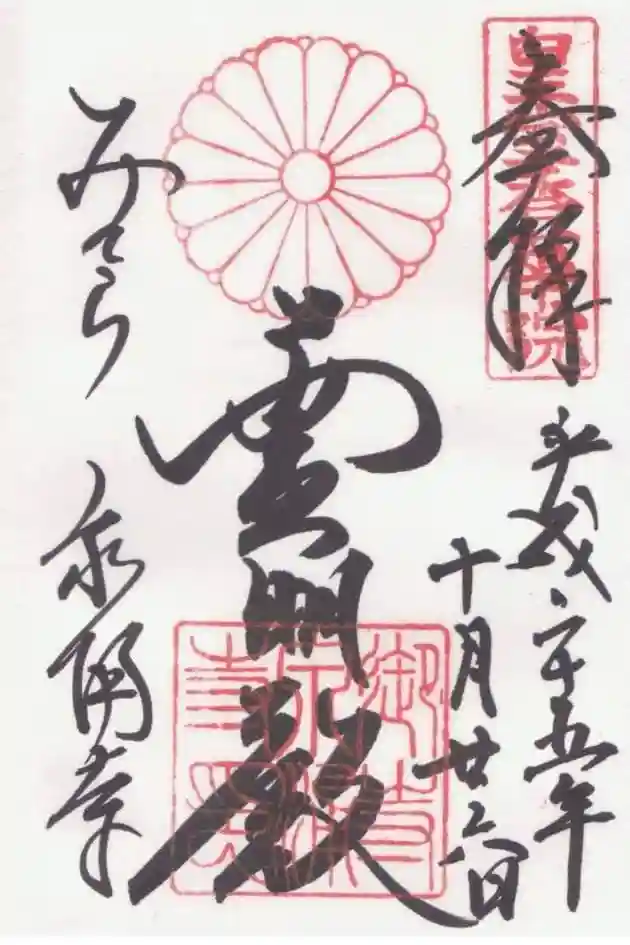 奉拝
皇室香華院
平成二十五年
十月廿六日
霊明殿
みてら
泉涌寺